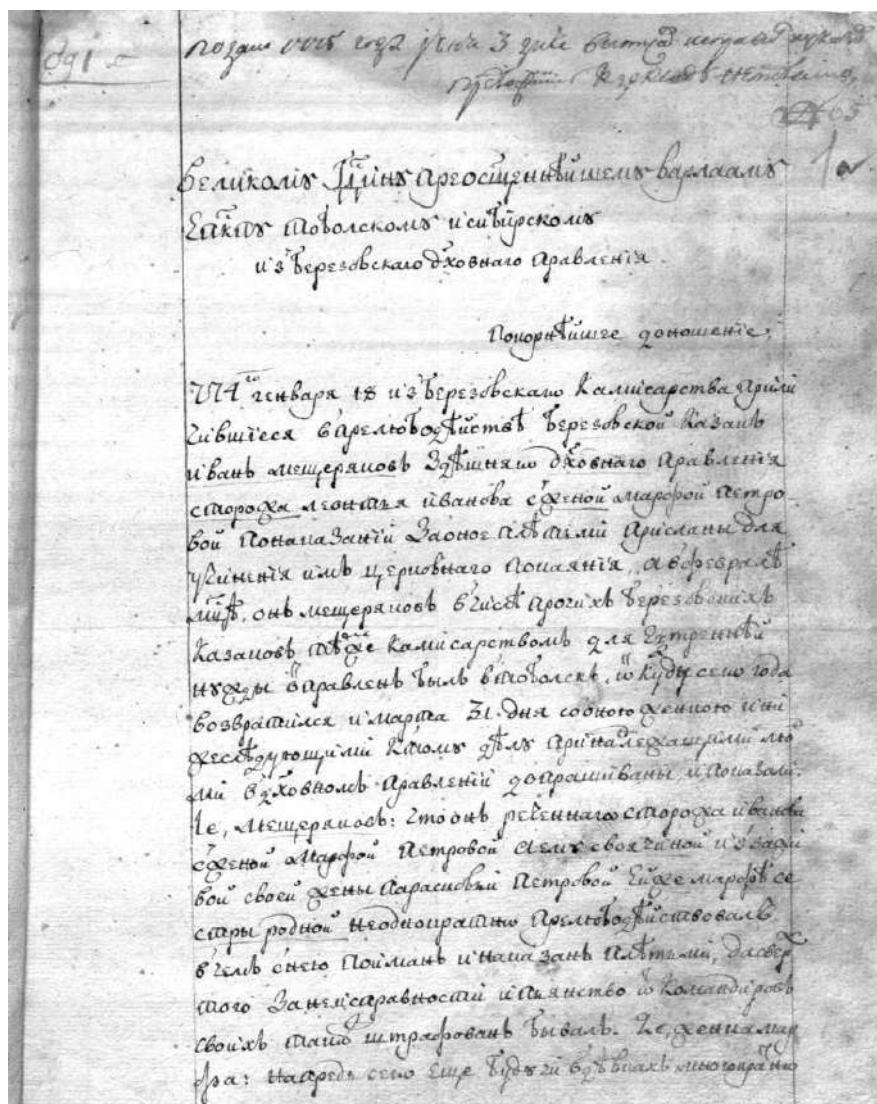 подано 1775 года 3 дня
Великому Гдину преосщеннѣйшему варлааму
Епкпу тоболскому и сибирскому
из березовскаго дховнаго правленïя
Покорнѣйшее доношенïе,
774го генваря 18 из березовскаго Камисарства прили
чившïеся в прелюбодѣйствѣ березовской Казакъ
иванъ мещеряковъ здѣшняго дховнаго правленïя
сторожа леонтья иванова сженой марфой петро
вой понаказанïй заоное плѣтьми присланы для
учиненïя имъ церковнаго покаянïя, а вфевралѣ
мцѣ, онъ мещеряковъ вчислѣ прочихъ березовскихъ
Казаковъ тѣмже Камисарствомъ для Екстреннѣй
нужды отправленъ былъ втоболскъ, откуды сего года
возвратился имарта 31 дня соною женкою ини
жеслѣдующïми Ктому дѣлу приналежащïми лю
ми вдховномъ правленïи допрашиваны, ипоказали
1е, мещеряковъ: что онъ реченнаго сторожа иванова
сженой марфой петровой аему своячиной из
вой своей жены парасковьи петровой Ейже марфѣ се
стры родной неоднократно прелюбодѣйствовалъ
вчемъ снею пойманъ инаказанъ плѣтьми, дасверх
того занеисправности ипьянство от Командировъ
своихъ штрафованъ бывалъ. 2е, женка мар
фа: напредь сего еще будучи вдѣвкахъ многократно